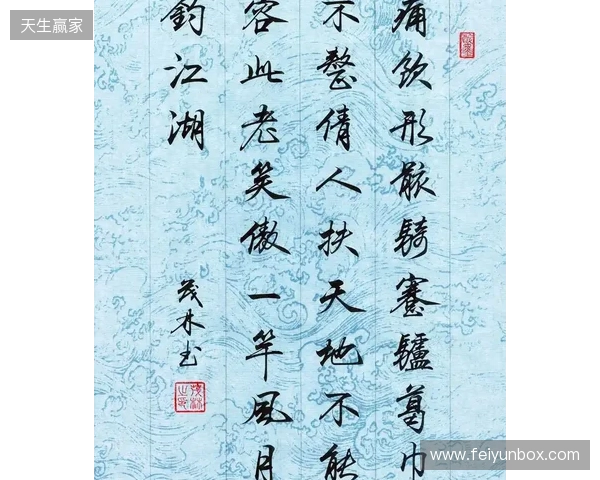 天生赢家
痛饮形骸騎蹇驢葛巾
不整倩人扶天地不能
容此老笑傲一竿風月
釣江湖
茂林书
www.feiyunbox.com